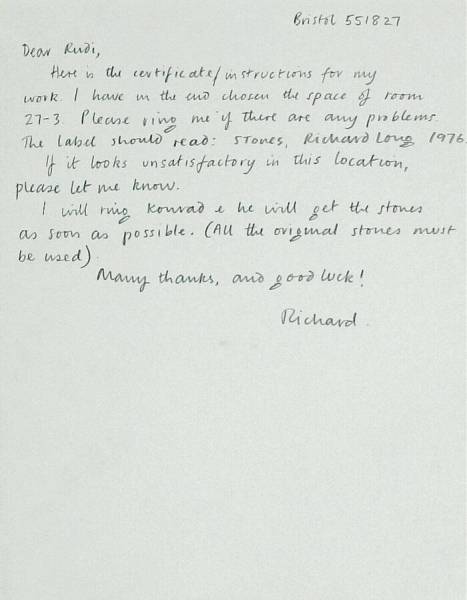 Bristol 551827
Dear Rudi,
Here is the certificate/instructions for my
work. I have in the end chosen the space of room
27-3. Please ring me if there are any problems.
The label should read: STONES, Richard Long 1976.
If it looks unsatisfactory in this location,
please let me know.
I will ring Konrad & he will get the stones
as soon as possible. (All the original stones must
be used).
Many thanks, and good luck!
Richard.